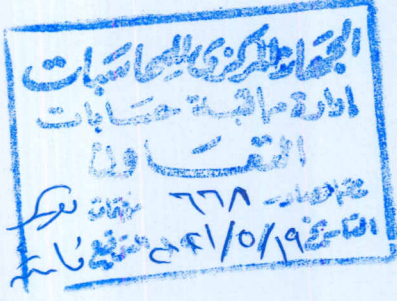 الجهاز المركزي للمحاسبات
إدارة مراقبة حسابات
التعاون
رقم الصادر ٦٦٨ مرفقات
التاريخ ١٩/٥/ التوقيع